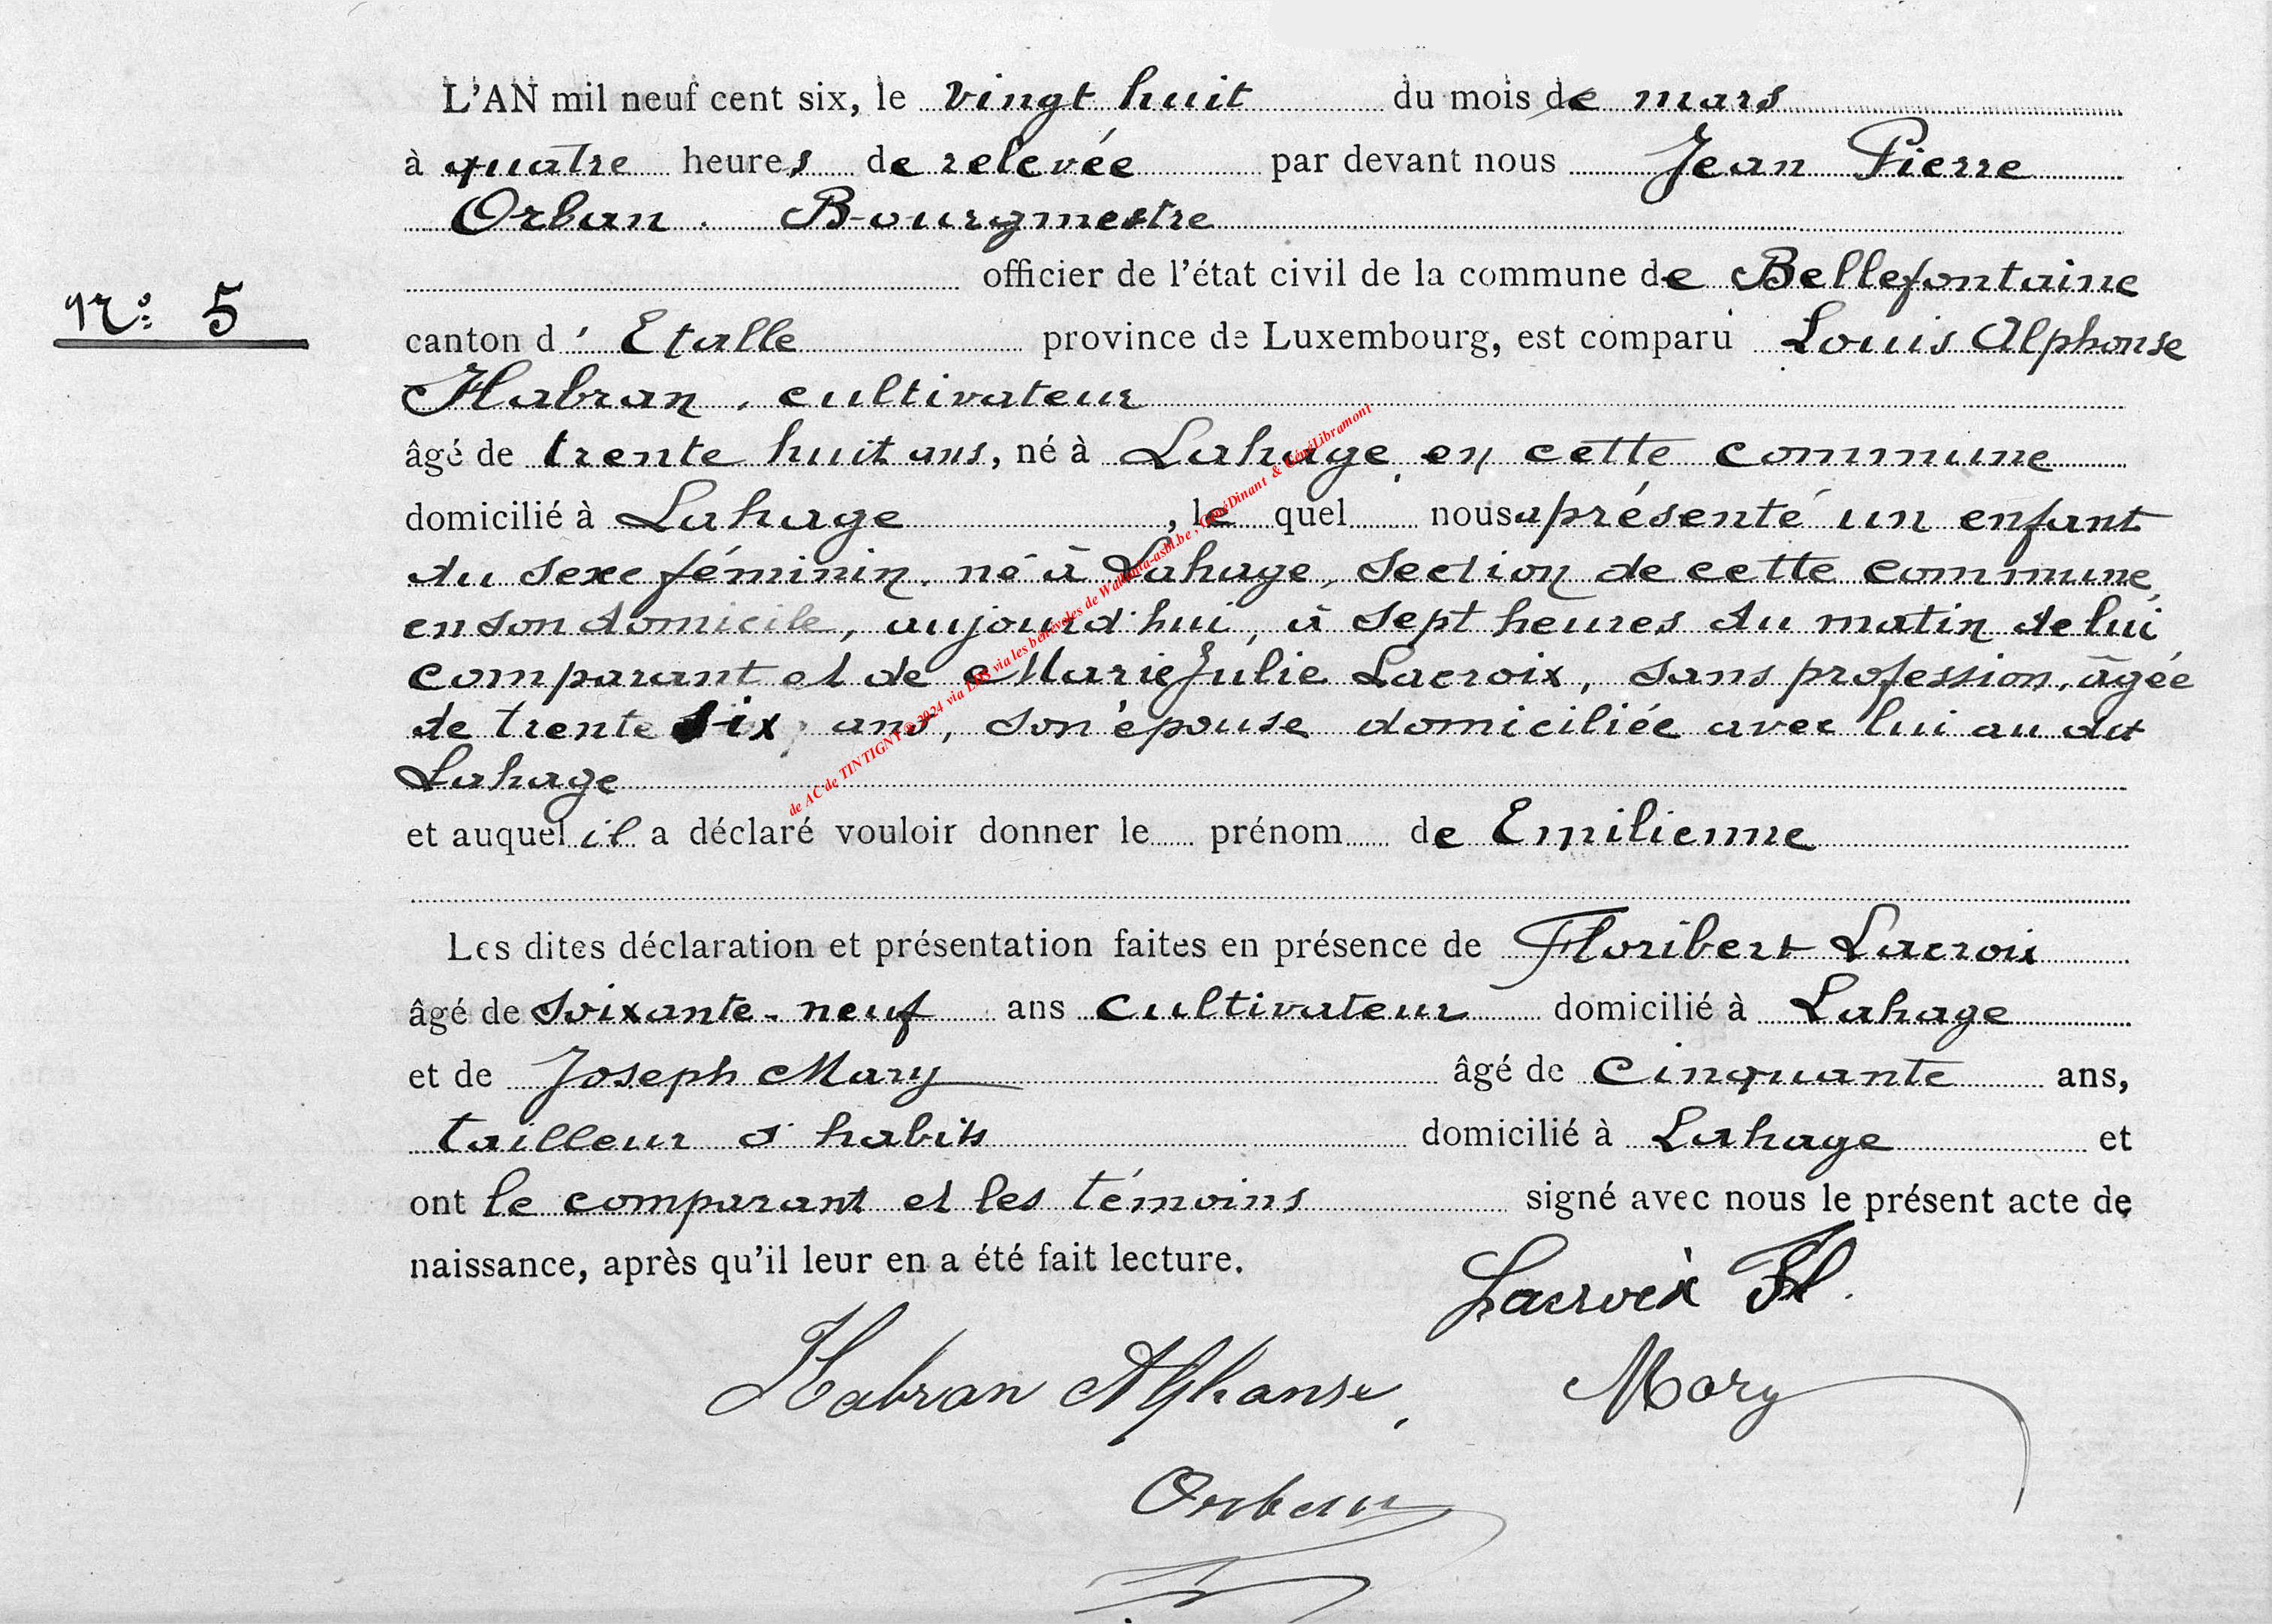 L'AN mil neuf cent six, le vingt huit du mois de mars
à quatre heures de relevée par devant nous Jean Pierre
Orban. Bourgmestre
officier de l'état civil de la commune de Bellefontaine
N° 5
canton d' Etalle province de Luxembourg, est comparu Louis Alphonse
Habran, cultivateur
âgé de trente huit ans, né à Lahage, en cette commune
domicilié à Lahage, le quel nous a présenté un enfant
du sexe féminin, né à Lahage, section de cette commune,
en son domicile, aujourd'hui, à sept heures du matin de lui
comparant et de Marie Julie Lacroix, sans profession, âgée
de trente six ans, son épouse domiciliée avec lui au dit
Lahage
et auquel il a déclaré vouloir donner le prénom de Emilienne
Les dites déclaration et présentation faites en présence de Floribert Lacroix
âgé de soixante-neuf ans cultivateur domicilié à Lahage
et de Joseph Mary âgé de cinquante ans,
tailleur d'habits domicilié à Lahage et
ont le comparant et les témoins signé avec nous le présent acte de
naissance, après qu'il leur en a été fait lecture.
Lacroix Fl.
Habran Alphonse,
Mary
Orban
de AC de TINTIGNY © 2024 via les bénévoles de Wallonia-asbl.be, GénéDinant & GénéLibramont